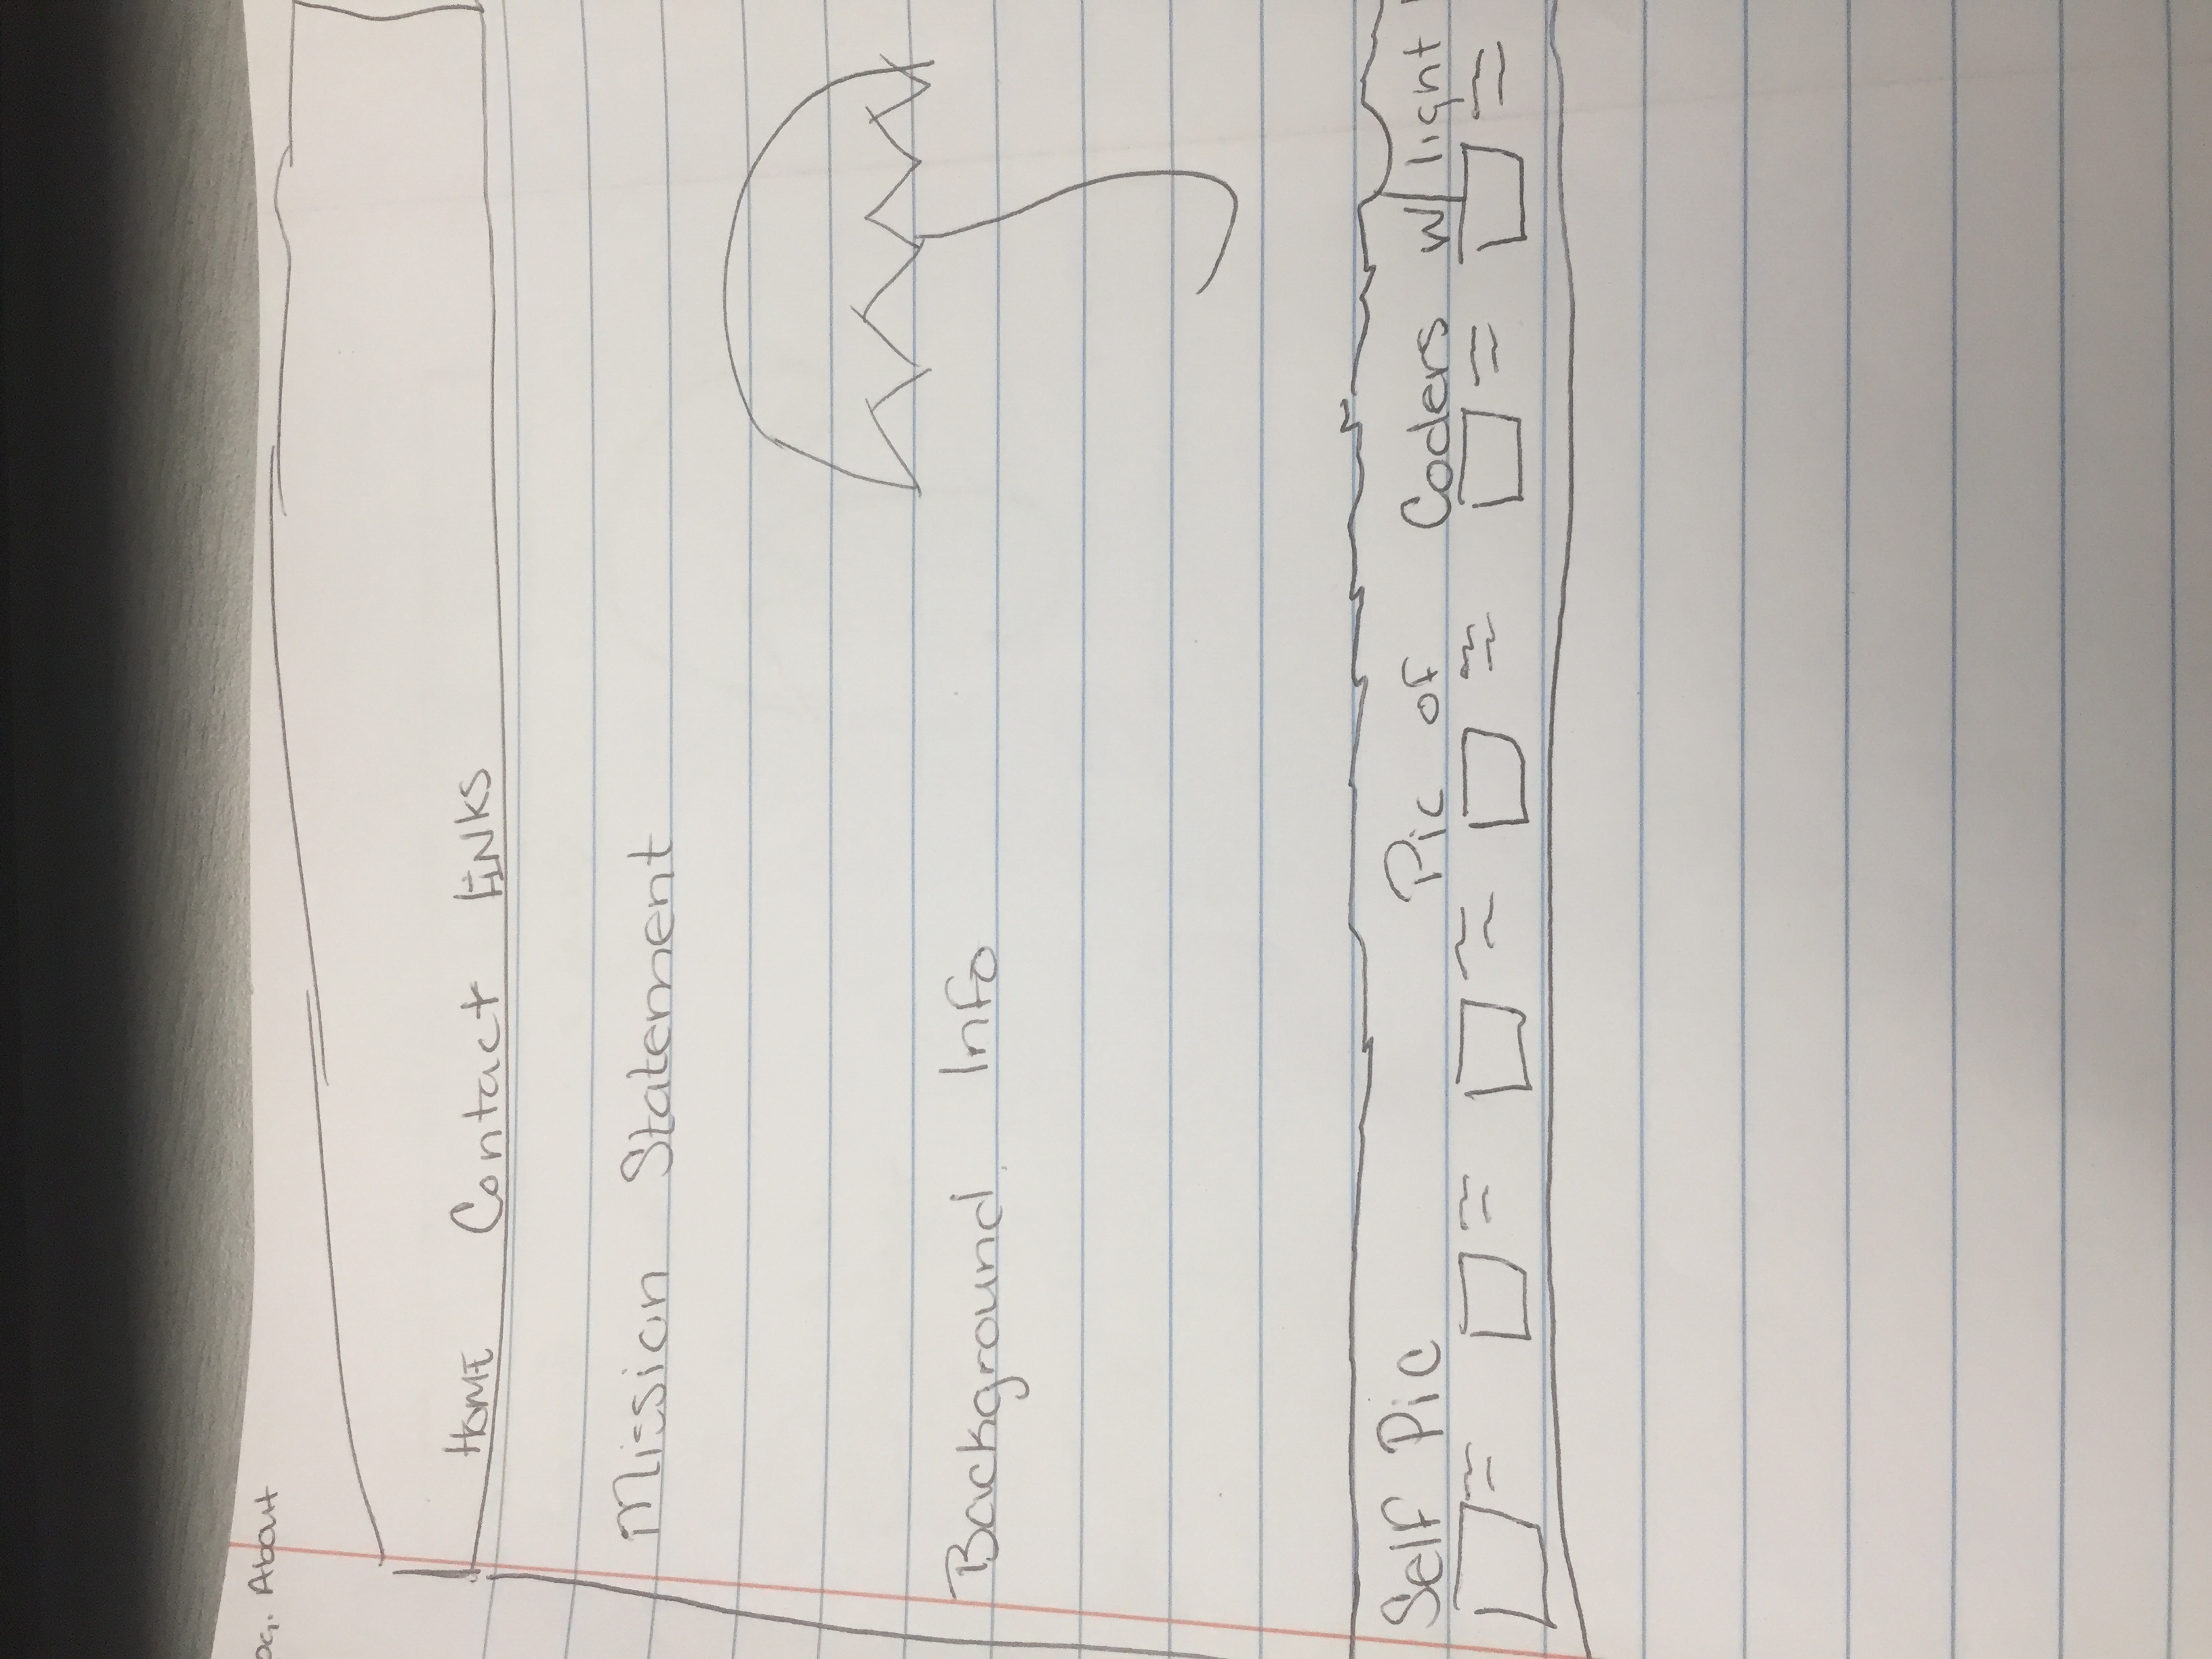 pg. About
HOME Contact LINKS
Mission Statement
Background Info
Self Pic Pic of Coders w/ light